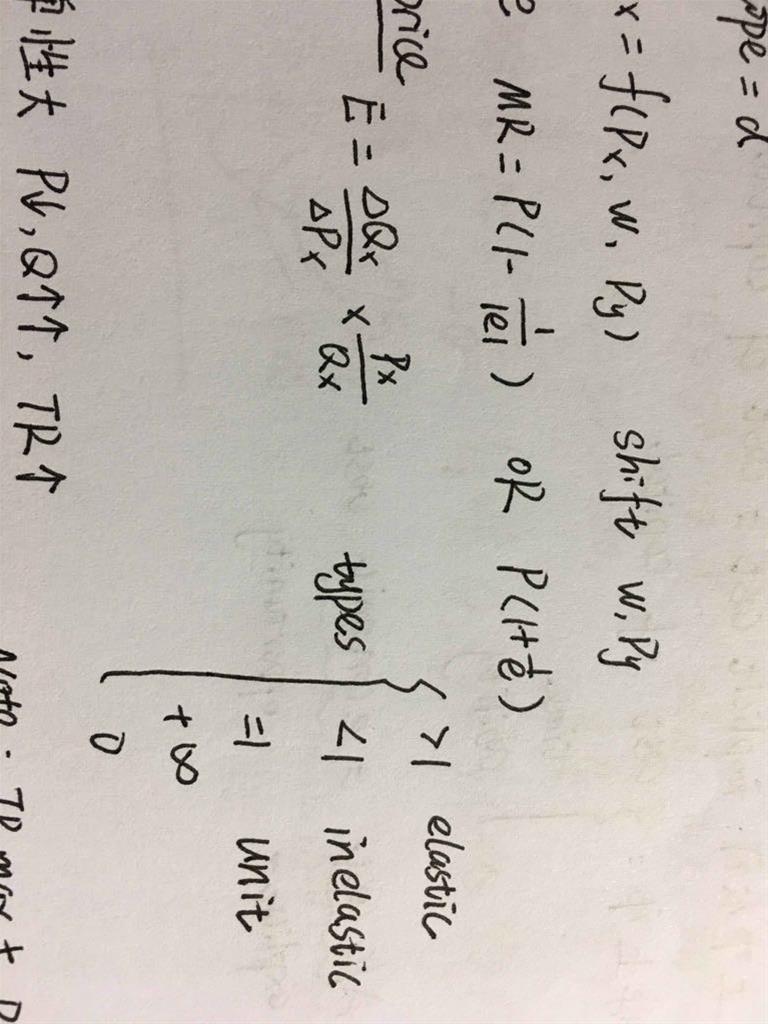 ype = d
x = f(Px, w, Py) shift w, Py
e MR = P(1 - 1/|e|) OR P(1 + 1/e)
price
E = ΔQx/ΔPx × Px/Qx types
>1 elastic
<1 inelastic
=1 unit
+∞
0
性大 P↓, Q↑↑, TR↑
Note: TR max +